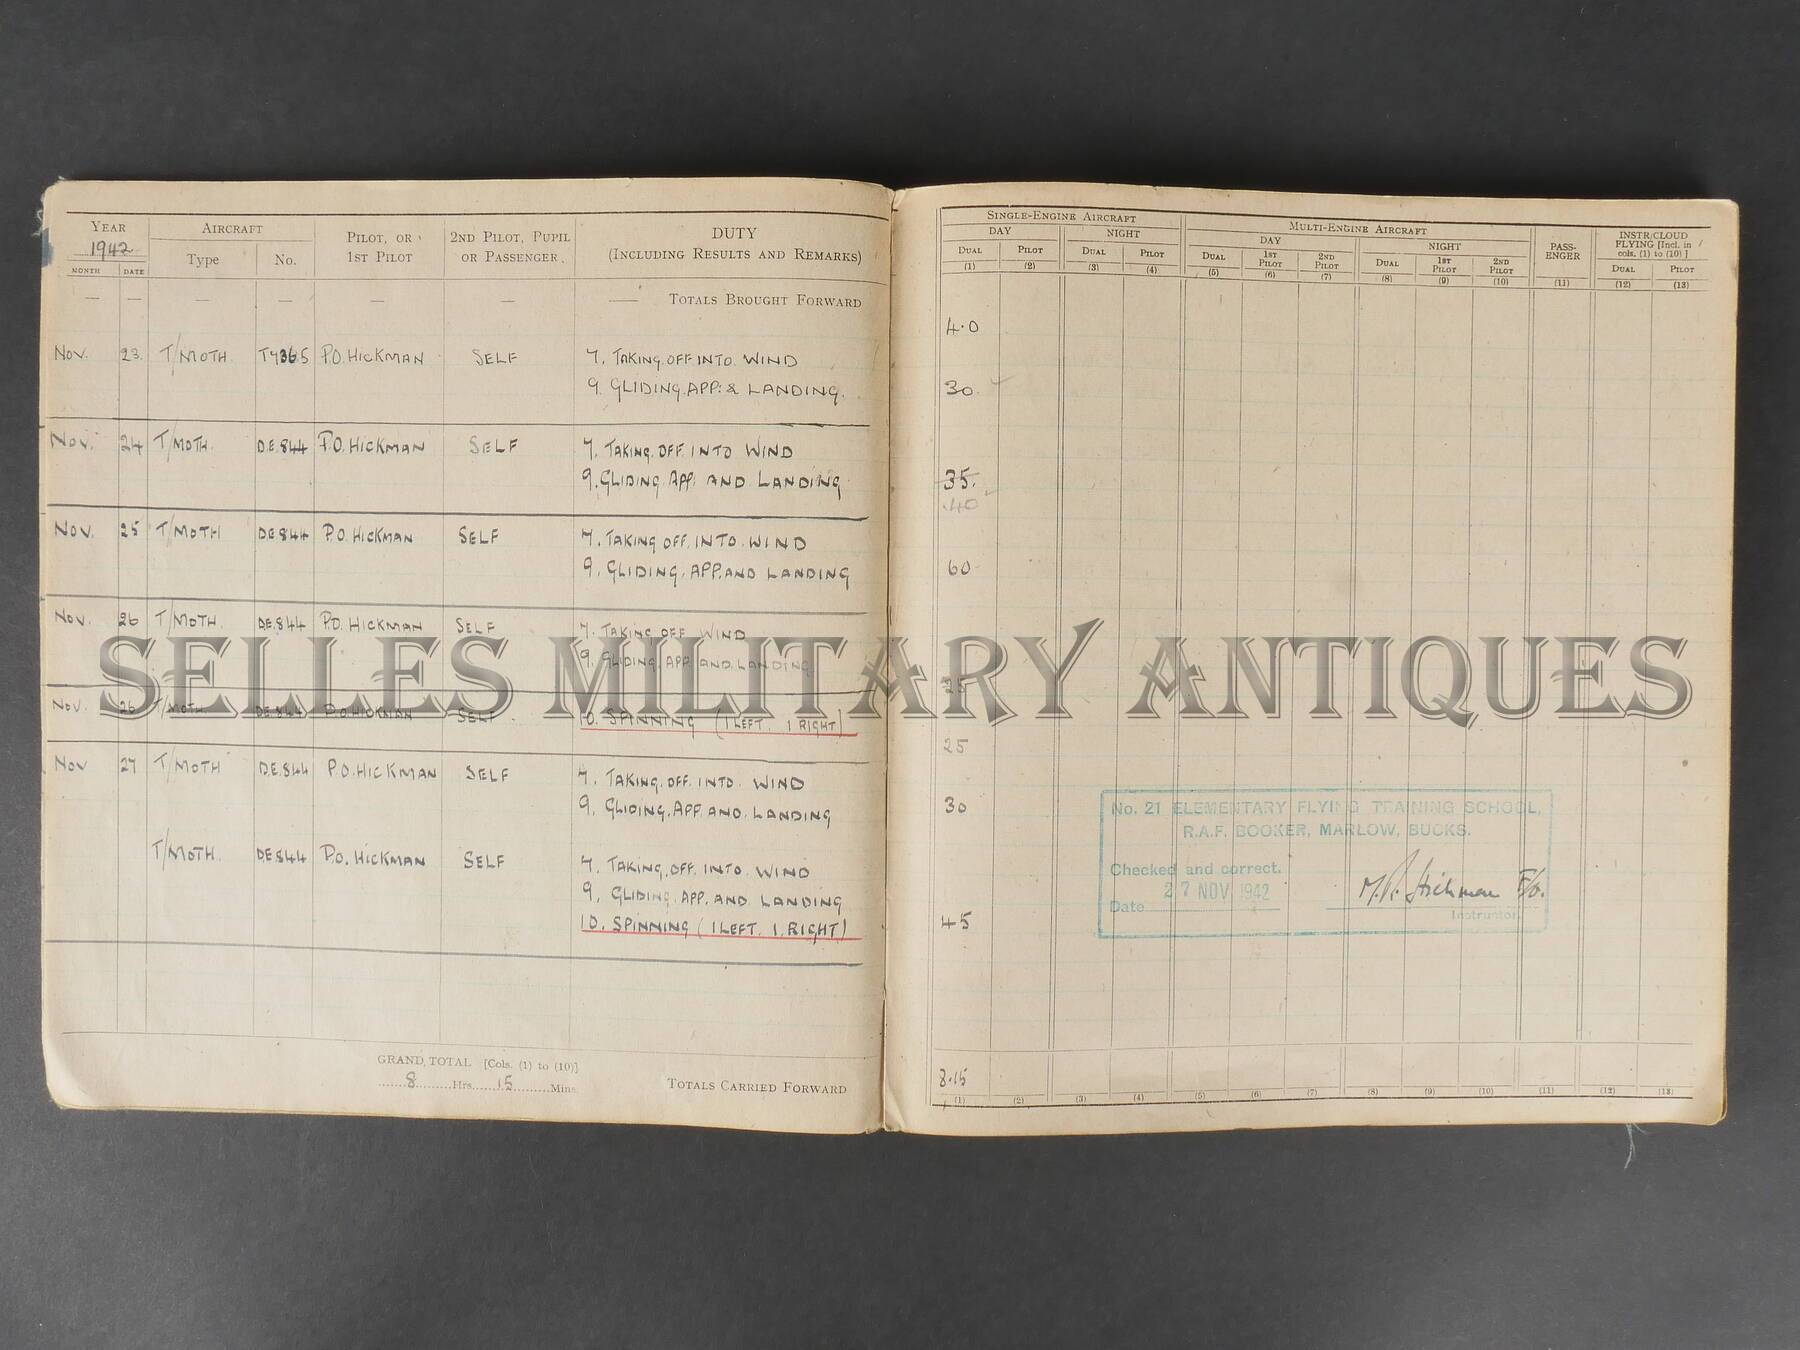 YEAR
1942
AIRCRAFT
PILOT, OR
1ST PILOT
2ND PILOT, PUPIL
OR PASSENGER
DUTY
(INCLUDING RESULTS AND REMARKS)
MONTH DATE Type No.
— — — — — — — TOTALS BROUGHT FORWARD
NOV. 23. T/MOTH. T7365 P.O. HICKMAN SELF 7. TAKING OFF INTO WIND
9. GLIDING. APP: & LANDING.
NOV. 24 T/MOTH. D.E.844 P.O. HICKMAN SELF 7. TAKING OFF INTO WIND
9. GLIDING. APP: AND LANDING
NOV. 25 T/MOTH DE844 P.O. HICKMAN SELF 7. TAKING OFF. INTO. WIND
9. GLIDING. APP. AND LANDING
NOV. 26 T/MOTH. D.E.844 P.O. HICKMAN SELF 7. TAKING OFF WIND
9. GLIDING. APP. AND. LANDING
NOV. 26 T/MOTH D.E.844 P.O. HICKMAN SELF 10. SPINNING (1 LEFT. 1 RIGHT)
NOV 27 T/MOTH D.E.844 P.O. HICKMAN SELF 7. TAKING. OFF. INTO WIND
9. GLIDING. APP. AND. LANDING
T/MOTH. DE844 P.O. HICKMAN SELF 7. TAKING. OFF. INTO WIND
9. GLIDING. APP. AND LANDING
10. SPINNING (1 LEFT. 1. RIGHT)
GRAND TOTAL [Cols. (1) to (10)]
8 Hrs. 15 Mins.
TOTALS CARRIED FORWARD
SINGLE-ENGINE AIRCRAFT
MULTI-ENGINE AIRCRAFT
PASS-
ENGER
INSTR/CLOUD
FLYING [Incl. in
cols. (1) to (10)]
DAY NIGHT DAY NIGHT
DUAL PILOT DUAL PILOT DUAL 1ST PILOT 2ND PILOT DUAL 1ST PILOT 2ND PILOT DUAL PILOT
(1) (2) (3) (4) (5) (6) (7) (8) (9) (10) (11) (12) (13)
40
30
35.
.40
60
25
30
45
No. 21 ELEMENTARY FLYING TRAINING SCHOOL,
R.A.F. BOOKER, MARLOW, BUCKS.
Checked and correct.
Date 27 NOV 1942
Hickman F/O.
Instructor.
8.15
(1) (2) (3) (4) (5) (6) (7) (8) (9) (10) (11) (12) (13)
SELLES MILITARY ANTIQUES